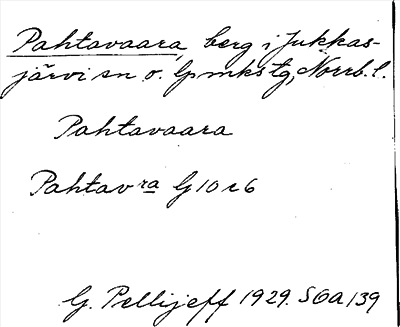 Pahtavaara, berg i Jukkas-
järvi sn o. lpmkstg, Norrb. l.
Pahtavaara
Pahtavra G10c6
G. Pellijeff 1929. SOA 139